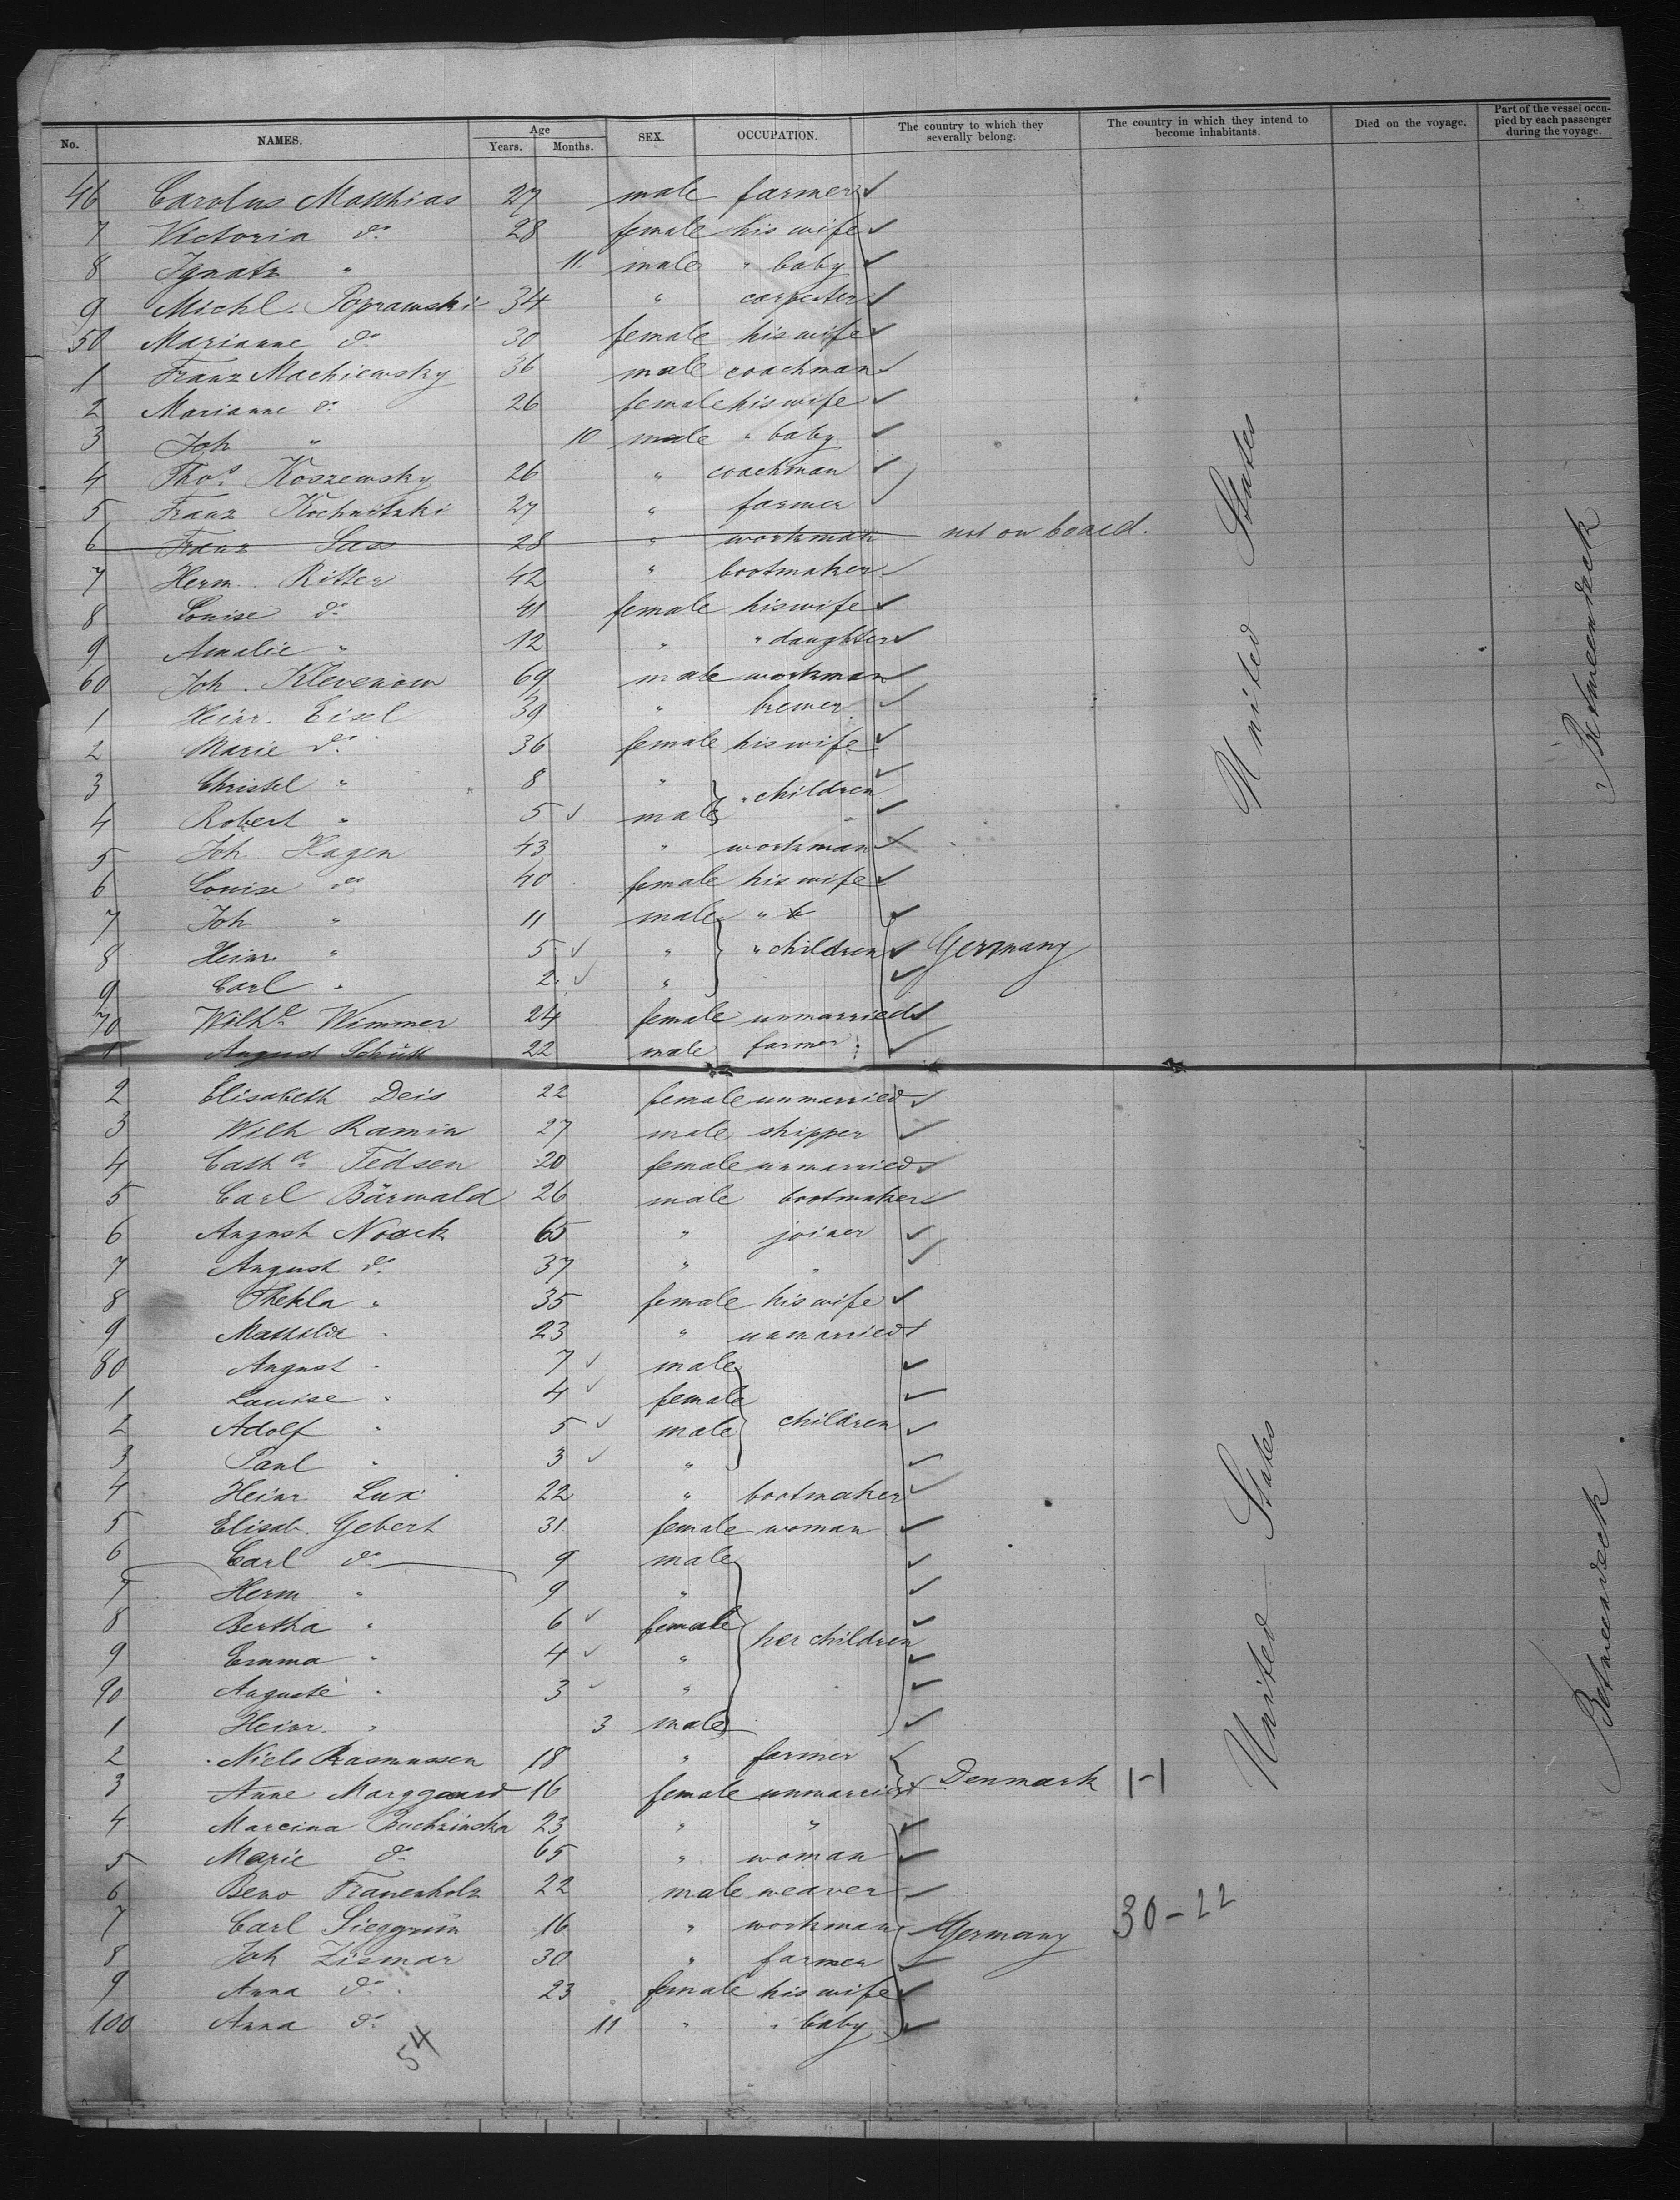 No. NAMES. Age Years. Months. SEX. OCCUPATION. The country to which they severally belong. The country in which they intend to become inhabitants. Died on the voyage. Part of the vessel occupied by each passenger during the voyage.
46 Carolus Matthias 27 male farmer ✓
7 Victoria do 28 female his wife ✓
8 Ignatz " 11. male " baby ✓
9 Michl. Poprawski 34 " carpenter ✓
50 Marianne do 30 female his wife ✓
1 Franz Machiewsky 36 male coachman ✓
2 Marianne do 26 female his wife ✓
3 Joh " 10 male " baby ✓
4 Thos. Koszewsky 26 " coachman ✓
5 Franz Kochnitzki 27 " farmer ✓
6 Franz Sass 28 " workman not on board.
7 Herm. Ritter 42 " bootmaker ✓
8 Louise do 41 female his wife ✓
9 Amalie " 12 " " daughter ✓
60 Joh. Klevenow 69 male workman ✓
1 Heinr. Eisel 39 " brewer ✓
2 Marie do. 36 female his wife ✓
3 Christel " 8 " " children ✓
4 Robert " 5 ✓ male ✓
5 Joh Hagen 43 " workman ✓
6 Louise do 40 female his wife ✓
7 Joh " 11 male " ✓
8 Heinr. " 5 ✓ " " children ✓ Germany
9 Carl " 2 ✓ " ✓
70 Wilhe. Wimmer 24 female unmarried ✓
1 August Schütt 22 male farmer ✓
United States
Betweendeck
2 Elisabeth Deis 22 female unmarried ✓
3 Wilh Ramin 27 male shipper ✓
4 Catha. Tedsen 20 female unmarried ✓
5 Carl Bärwald 26 male bootmaker ✓
6 August Noack 65 " joiner ✓
7 August do. 37 " " ✓
8 Thekla " 35 female his wife ✓
9 Mathilde " 23 " unmarried ✓
80 August " 7 ✓ male ✓
1 Louise " 4 ✓ female ✓
2 Adolf " 5 ✓ male children ✓
3 Paul " 3 ✓ " ✓
4 Heinr Lux 22 " bootmaker ✓
5 Elisab. Gebert 31 female woman ✓
6 Carl do 9 male ✓
7 Herm " 9 " ✓
8 Bertha " 6 ✓ female ✓
9 Emma " 4 ✓ " her children ✓
90 Auguste " 3 ✓ " ✓
1 Heinr. " 3 male ✓
2 Niels Rasmussen 18 " farmer ✓
3 Anne Marggaard 16 female unmarried ✓ Denmark 1-1
4 Marcina 23 " " ✓
5 Marie do 65 " woman ✓
6 Beno Frauenholz 22 male weaver ✓
7 Carl Sieggrün 16 " workman ✓ Germany 30-22
8 Joh Zismar 30 " farmer ✓
9 Anna do. 23 female his wife ✓
100 Anna do 11 " " baby ✓
54
United States
Betweendeck